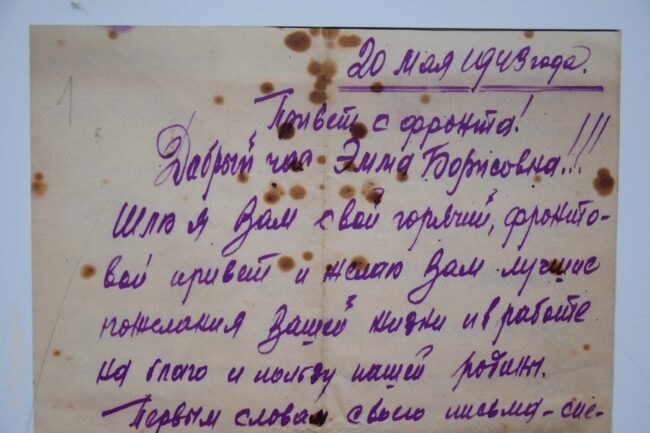 20 мая 1943 года.
Привет с фронта!
Дабрый час Эмма Борисовна!!!
Шлю я Вам свой горячий, фронто-
вой привет и желаю Вам лучшие
пожелания Вашей жизни и в работе
на благо и пользу нашей родины.
Первым словам своего письма – спе-
1